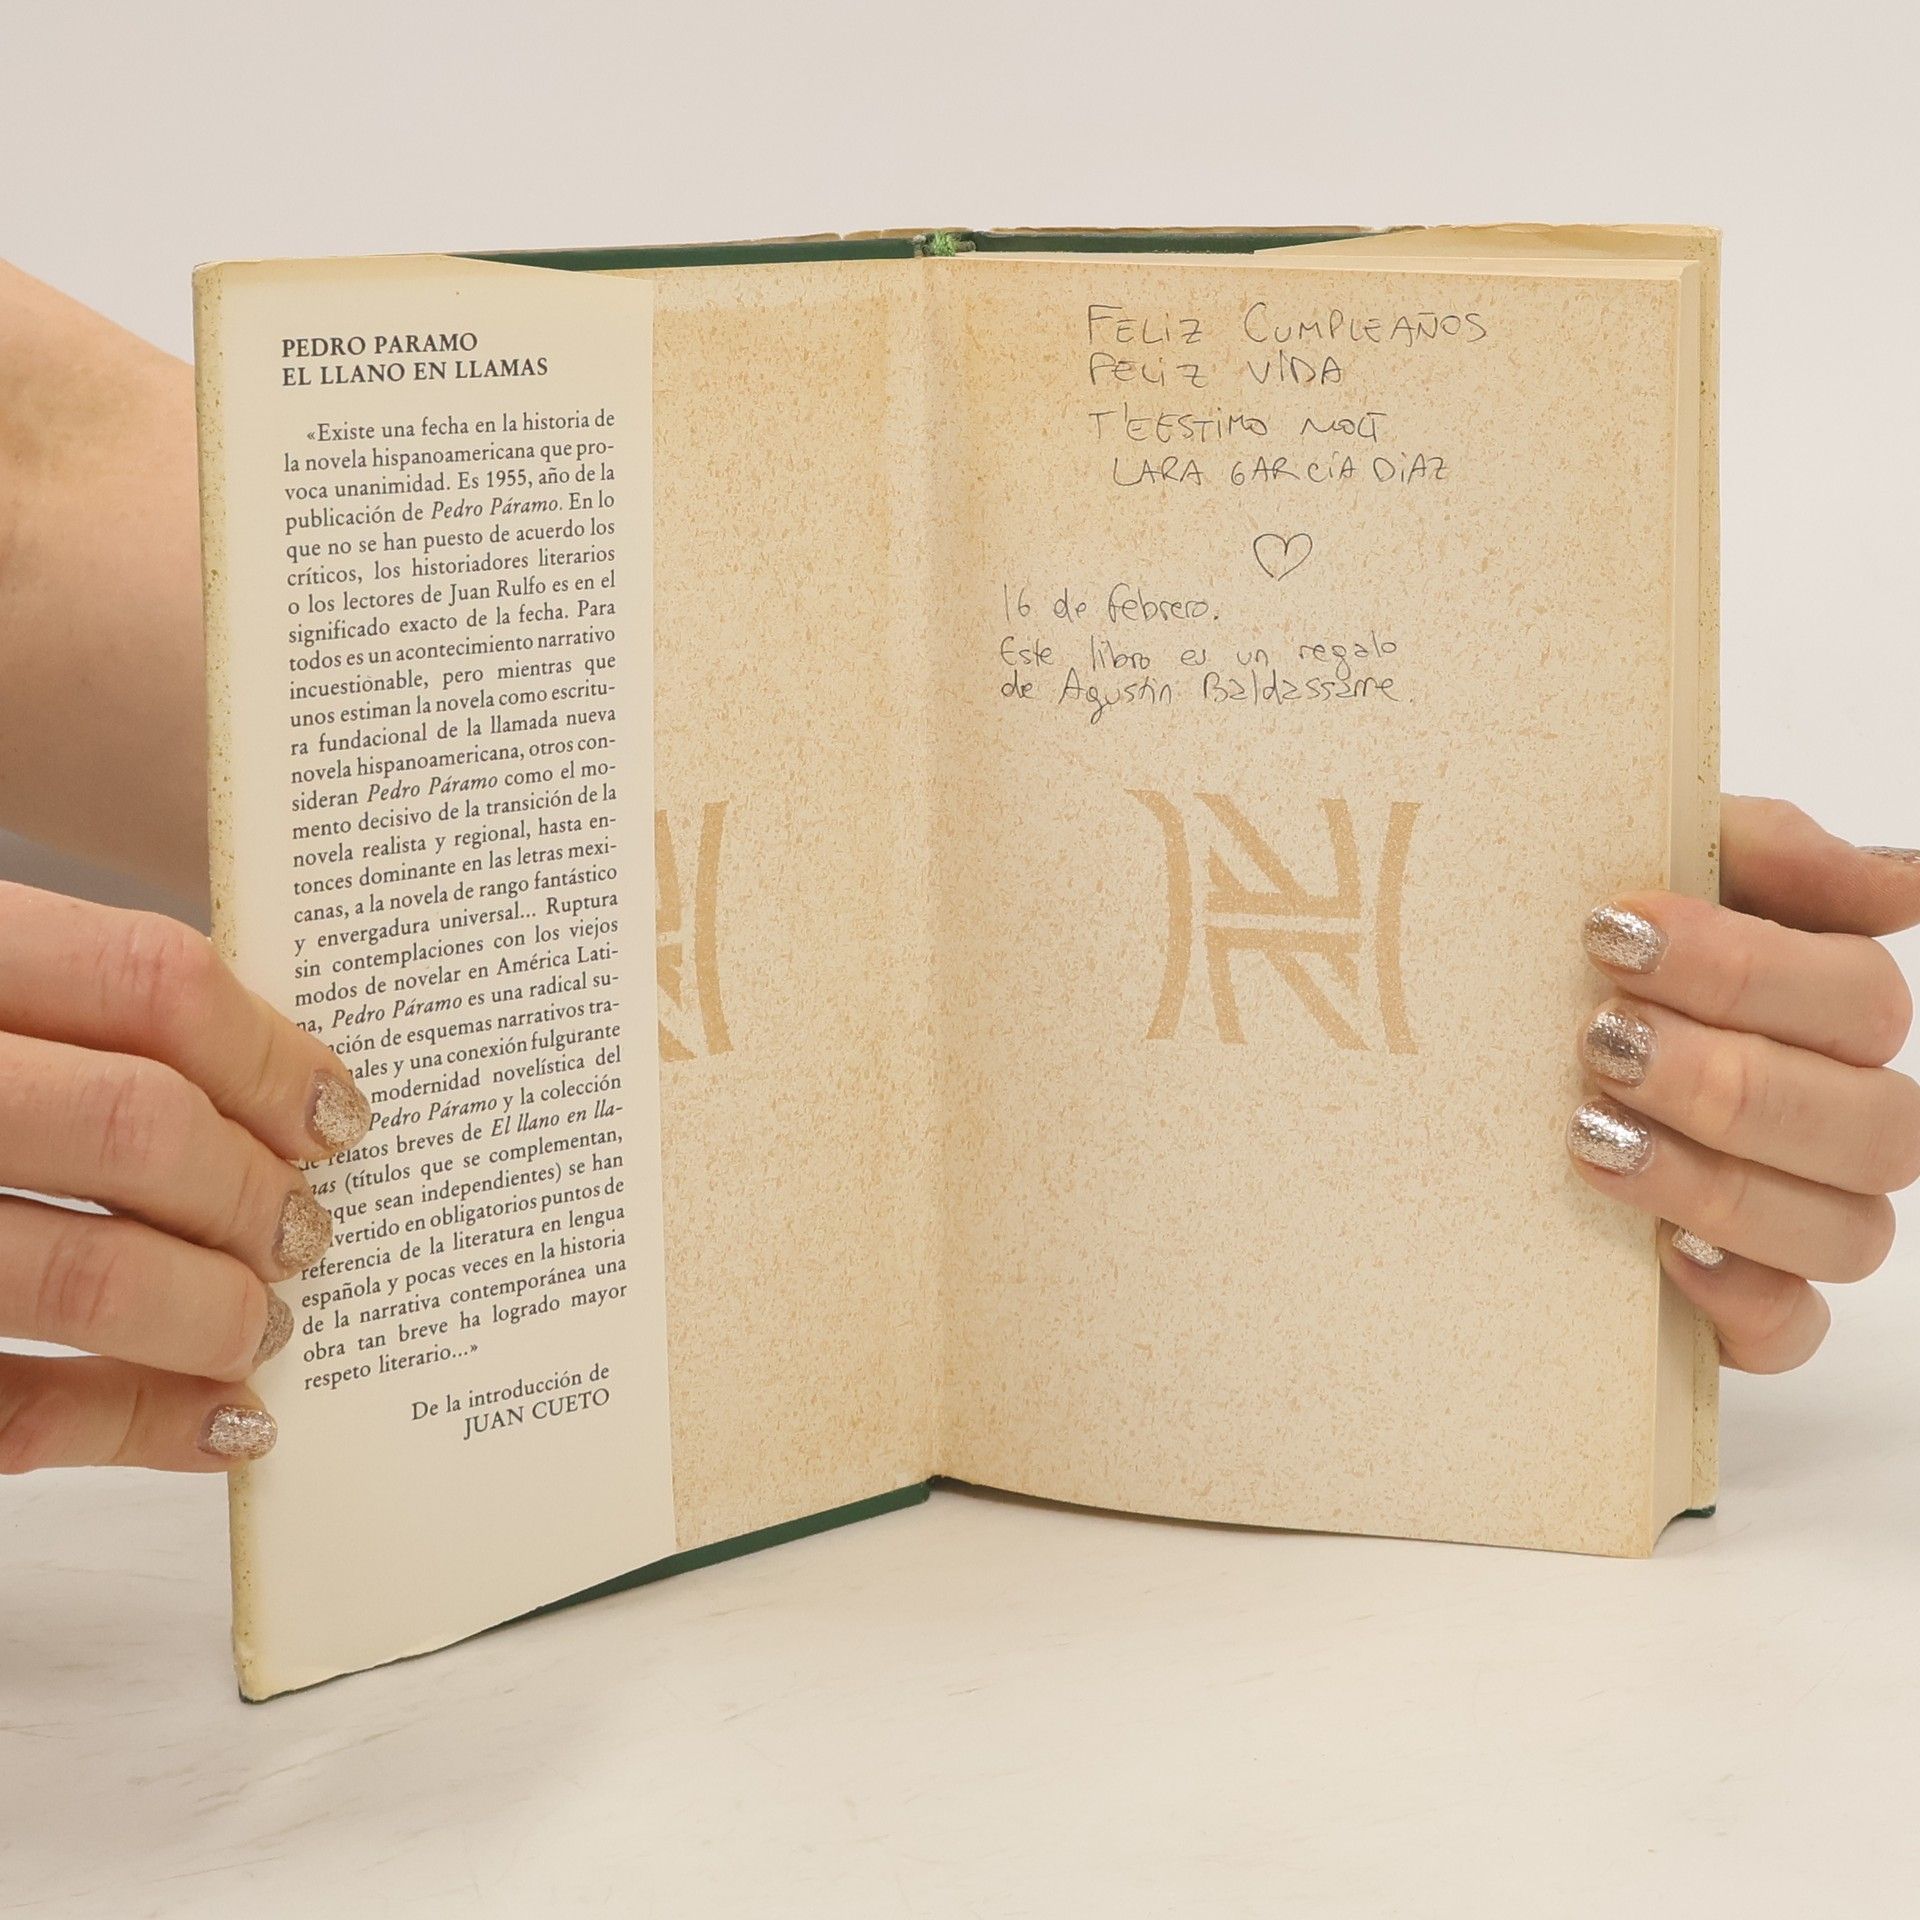 PEDRO PARAMO
EL LLANO EN LLAMAS
«Existe una fecha en la historia de
la novela hispanoamericana que pro-
voca unanimidad. Es 1955, año de la
publicación de Pedro Páramo. En lo
que no se han puesto de acuerdo los
críticos, los historiadores literarios
o los lectores de Juan Rulfo es en el
significado exacto de la fecha. Para
todos es un acontecimiento narrativo
incuestionable, pero mientras que
unos estiman la novela como escritu-
ra fundacional de la llamada nueva
novela hispanoamericana, otros con-
sideran Pedro Páramo como el mo-
mento decisivo de la transición de la
novela realista y regional, hasta en-
tonces dominante en las letras mexi-
canas, a la novela de rango fantástico
y envergadura universal... Ruptura
sin contemplaciones con los viejos
modos de novelar en América Lati-
na, Pedro Páramo es una radical su-
ción de esquemas narrativos tra-
nales y una conexión fulgurante
modernidad novelística del
Pedro Páramo y la colección
de relatos breves de El llano en lla-
mas (títulos que se complementan,
que sean independientes) se han
vertido en obligatorios puntos de
referencia de la literatura en lengua
española y pocas veces en la historia
de la narrativa contemporánea una
obra tan breve ha logrado mayor
respeto literario...»
De la introducción de
JUAN CUETO
FELIZ CUMPLEAÑOS
FELIZ VIDA
T'EESTIMO MOLT
LARA GARCÍA DÍAZ
16 de febrero.
Este libro es un regalo
de Agustín Baldassarre.